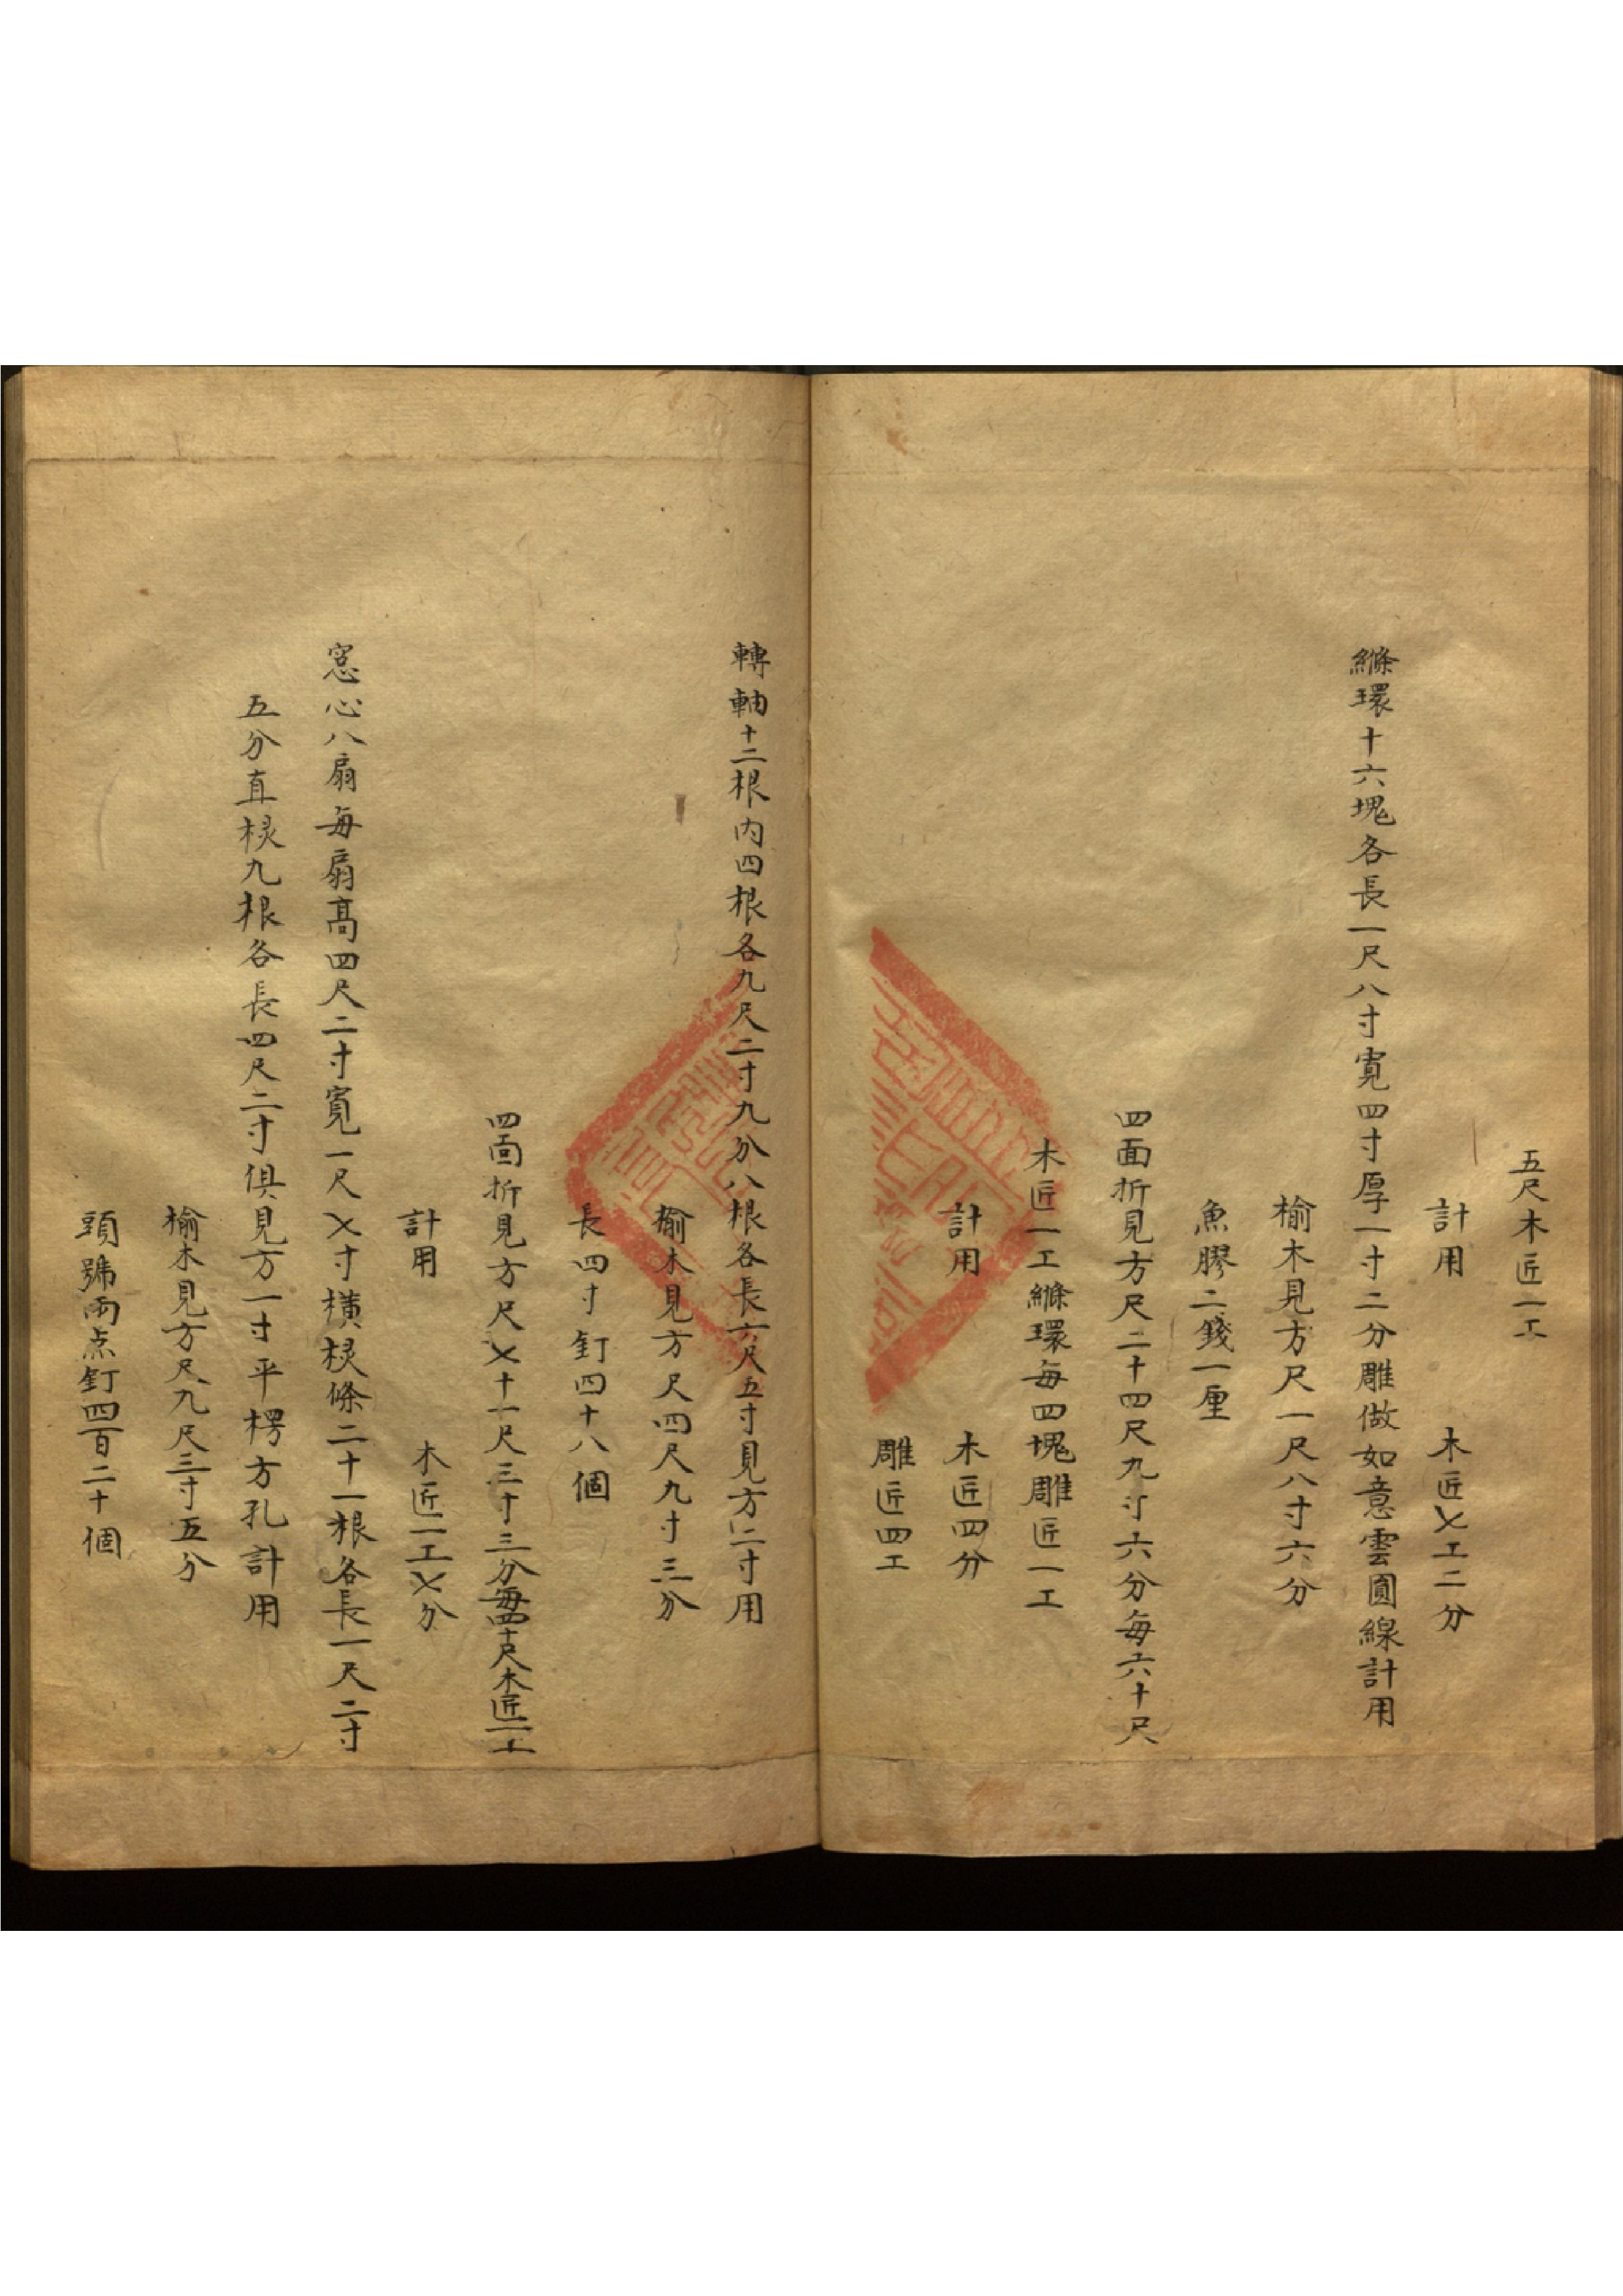 五尺木匠一工
計用　木匠乂工二分
縧環十六塊各長一尺八寸寬四寸厚一寸二分雕做如意雲圓線計用
榆木見方尺一尺八寸六分
魚膠二錢一厘
四面折見方尺二十四尺九寸六分每六十尺
木匠一工縧環每四塊雕匠一工
計用　木匠四分
雕匠四工
轉軸十二根内四根各九尺二寸九分八根各長六尺五寸見方二寸用
榆木見方尺四尺九寸三分
長四寸釘四十八個
四面折見方尺乂十一尺三寸三分每四十尺木匠一工
計用　木匠一工乂分
窓心八扇每扇高四尺二寸寬一尺乂寸橫棂條二十一根各長一尺二寸
五分直棂九根各長四尺二寸俱見方一寸平楞方孔計用
榆木見方尺九尺三寸五分
頭號兩点釘四百二十個